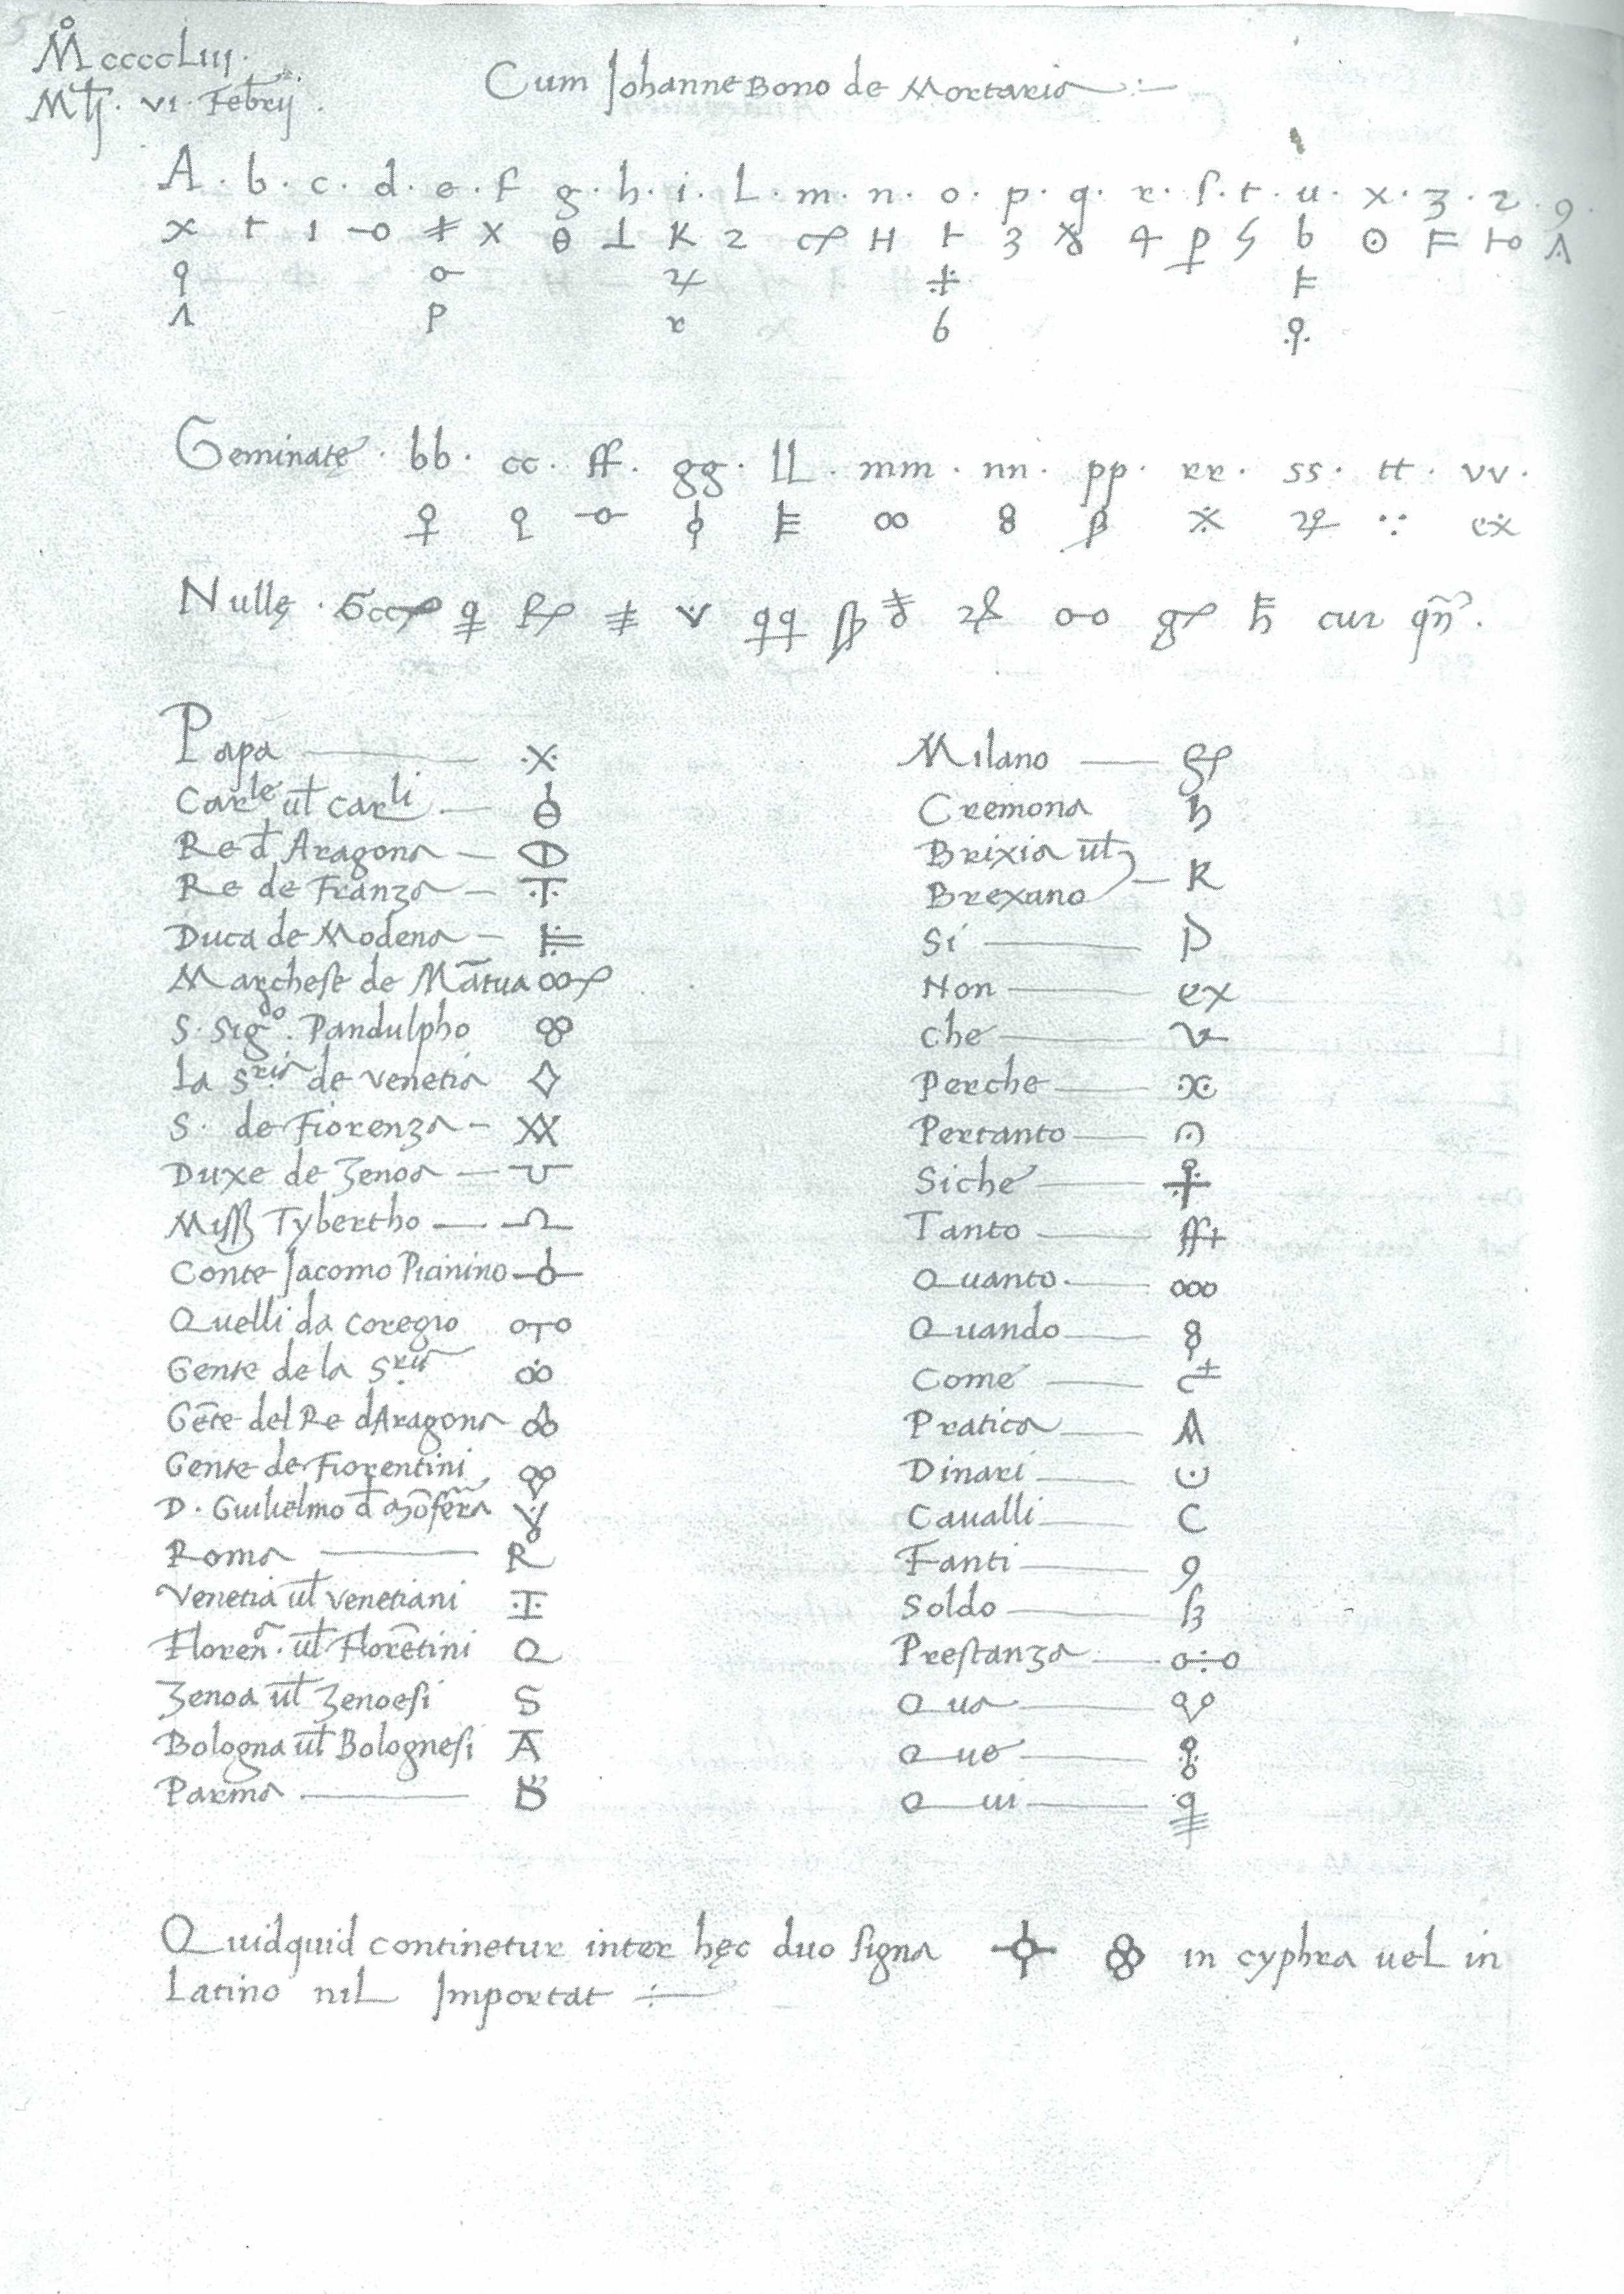 MccccLIII.
Mtij. VI. Febrij.
Cum Johanne Bono de Mortario
A. b. c. d. e. f g. h. i. L. m. n. o. p. q. r. ſ. t. u. x. ʒ. 2. 9.
Geminate. bb. cc. ff. gg. LL. mm. nn. pp. rr. ss. tt. vv.
Nullę.
Papa
Carle ul̄ carli
Re d Aragona
Re de Franza
Duca de Modena
Marcheſe de Mātua
S. Sigdo. Pandulpho
La Sria de venetia
S. de Fiorenza
Duxe de Zenoa
Miſſ Tybertho
Conte Jacomo Picinino
Quelli da coregio
Gente de la Sria
Gēte del Re dAragona
Gente de Fiorentini
D. Guilielmo
Roma
Venetia ul̄ venetiani
Floren̄. ul̄ Florētini
Zenoa ul̄ Zenoeſi
Bologna ul̄ Bologneſi
Parma
Milano
Cremona
Brixia ul̄
Brexano
Si
Non
Che
Perche
Pertanto
Siche
Tanto
Quanto
Quando
Come
Pratica
Dinari
Caualli
Fanti
Soldo
Preſtanza
Qua
Que
Qui
Quidquid continetur inter hęc duo ſigna in cyphra ueL in
Latino niL Importat